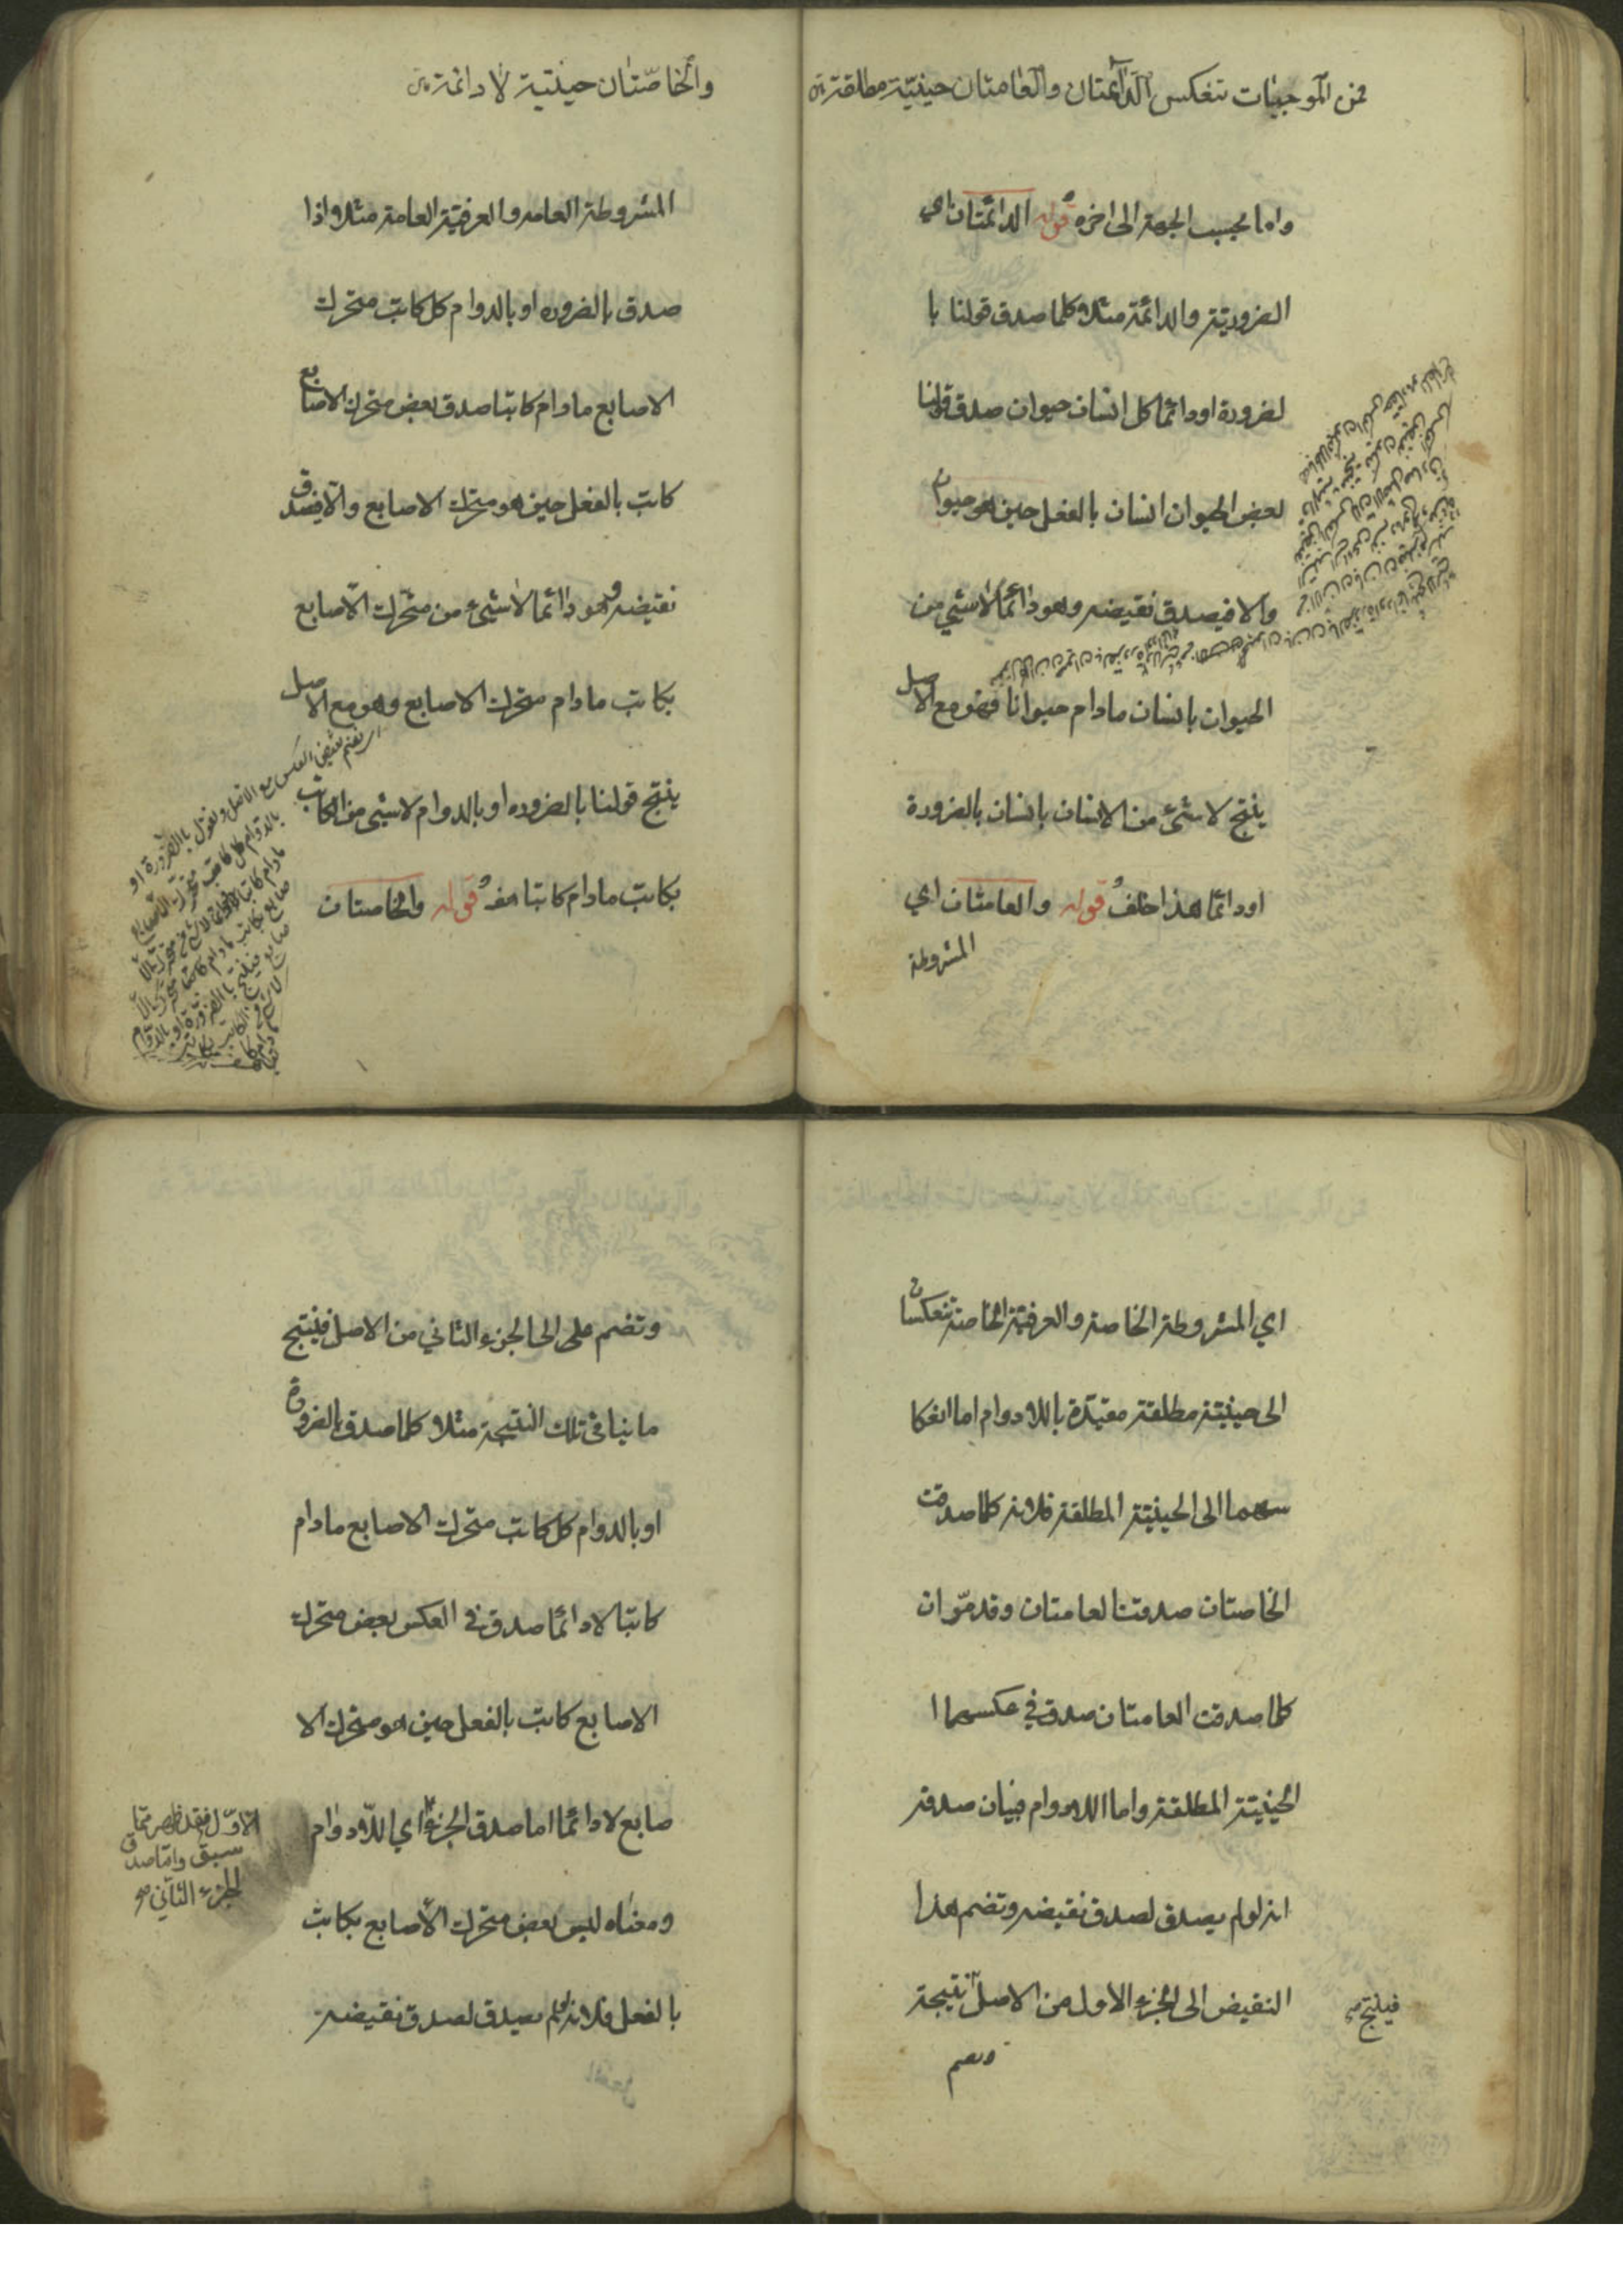 فمن الموجبات تنعكس الدائمتان والعامتان حينيّة مطلقة
واما بحسب الجهة الى اخره قوله الدائمتان اي
الضروريّة والدائمة مثلا كلما صدق قولنا با
لضرورة او دائما كل انسان حيوان صدق قولنا
بعض الحيوان انسان بالفعل حين هو حيوان
والا فيصدق نقيضه وهو دائما لا شيء من
الحيوان بانسان مادام حيوانا فهو مع الاصل
ينتج لا شئ من الانسان بانسان بالضرورة
او دائما هذا خلف قوله والعامتان اي
المشروطة
والخاصّتان حينيّة لا دائمة
المشروطة العامه والعرفيّة العامة مثلا واذا
صدق بالضروره او بالدوام كل كاتب متحرك
الاصابع مادام كاتبا صدق بعض متحرك الاصابع
كاتب بالفعل حين هو متحرك الاصابع والا فيصدق
نقيضه وهو دائما لا شئ من متحرك الاصابع
بكاتب مادام متحرك الاصابع وهو مع الاصل
ينتج قولنا بالضروره او بالدوام لا شئ من الكاتب
بكاتب مادام كاتبا هف قوله والخاصتان
نضم نقيض العكس مع الاصل ونقول بالضرورة او
بالدوام كل كاتب متحرك الاصابع
اي المشروطة الخاصة والعرفيّة الخاصة تنعكسان
الى حينيّة مطلقة مقيّدة باللادوام اما انعكا
سهما الى الحينيّة المطلقة فلانه كلما صدقت
الخاصتان صدقتا لعامتان وقد مرّ ان
كلما صدقت العامتان صدق في عكسهما ا
لحينيّة المطلقة واما اللادوام فبيان صدقه
انه لو لم يصدق لصدق نقيضه وتضم هذا
النقيض الى الجزء الاول من الاصل نتيجة
فينتج صح
وتضم
وتضم على الى الجزء الثاني من الاصل فينتج
ما ينافي تلك النتيجة مثلا كلما صدق بالضرورة
او بالدوام كل كاتب متحرك الاصابع مادام
كاتبا لا دائما صدق في العكس بعض متحرك
الاصابع كاتب بالفعل حين هو متحرك الا
صابع لا دائما اما صدق الجزء اي اللادوام
ومعناه ليس بعض متحرك الاصابع بكاتب
بالفعل فلانه لو لم يصدق لصدق نقيضه
الاوّل فقد ظهر ممّا
سبق وامّا صدق
الجزء الثاني صح